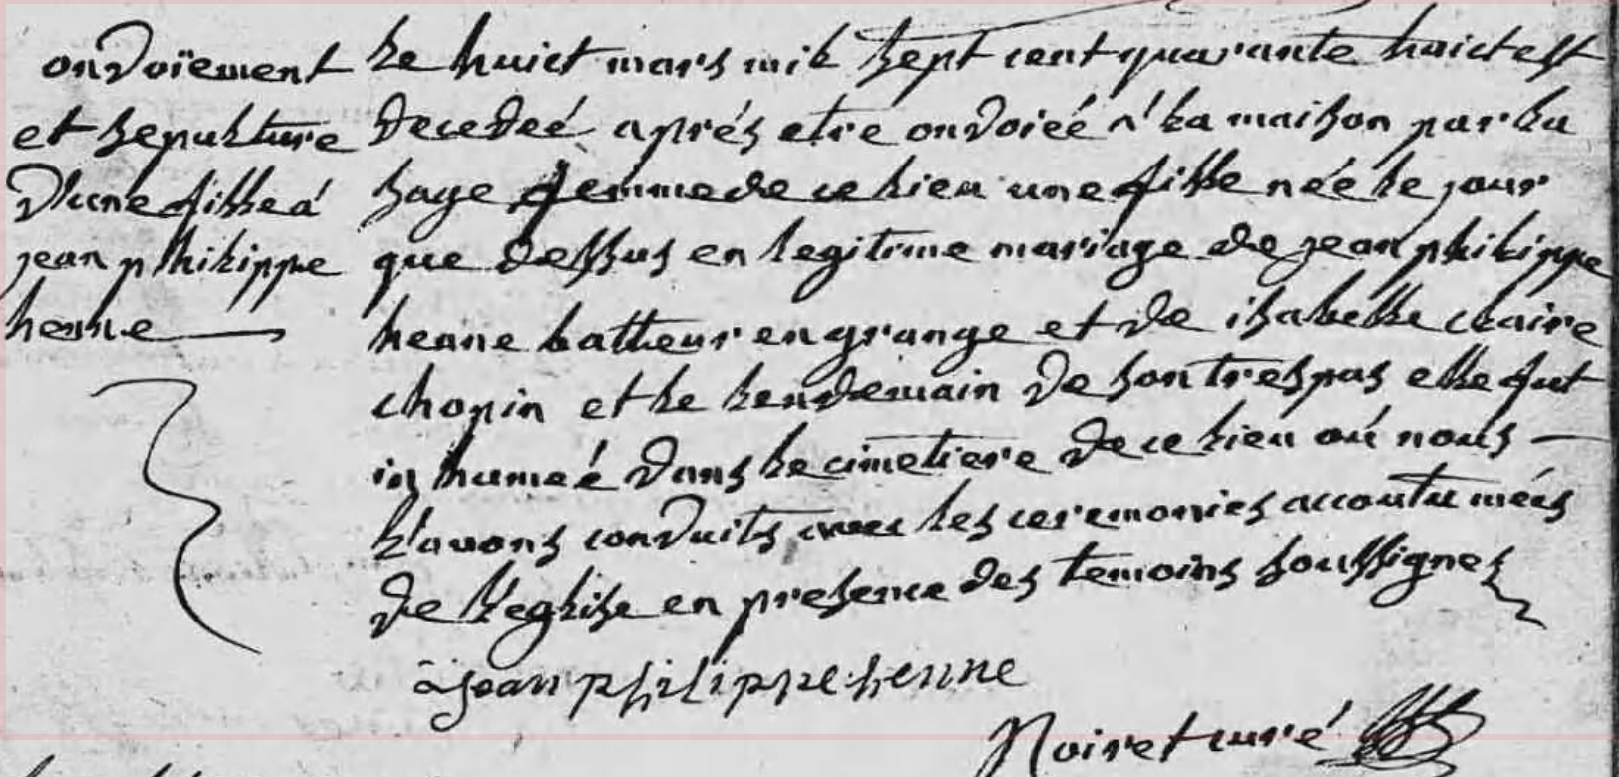 ondoïement
et sepulture
d'une fille á
jean philippe
henne
Le huict mars mil sept cent quarante huict est
decedeé aprés etre ondoieé a' la maison par la
sage femme de ce lieu une fille née le jour
que dessus en legitime mariage de jean philippe
henne batteur en grange et de isabelle claire
chopin et le lendemain de son trespas elle fut
inhumeé dans le cimetiere de ce lieu oú nous
l'avons conduits avec les ceremonies accoutumeés
de l'eglise en presence des temoins soussignes
jean philippe henne
Noiret curé